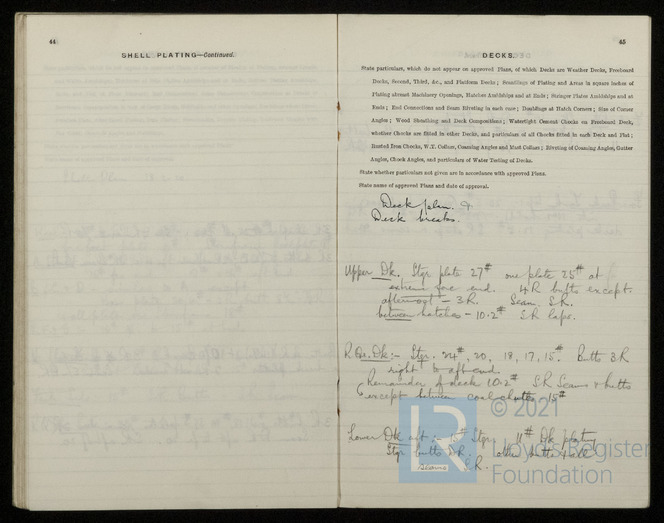 44
SHELL PLATING—Continued.
45
DECKS.
State particulars, which do not appear on approved Plans, of which Decks are Weather Decks, Freeboard
Decks, Second, Third, &c., and Platform Decks; Scantlings of Plating and Areas in square inches of
Plating abreast Machinery Openings, Hatches Amidships and at Ends; Stringer Plates Amidships and at
Ends; End Connections and Seam Riveting in each case; Doublings at Hatch Corners; Size of Corner
Angles; Wood Sheathing and Deck Compositions; Watertight Cement Chocks on Freeboard Deck,
whether Chocks are fitted in other Decks, and particulars of all Chocks fitted in each Deck and Flat;
Rusted Iron Chocks, W.T. Collars, Coaming Angles and Mast Collars; Riveting of Coaming Angles, Gutter
Angles, Chock Angles, and particulars of Water Testing of Decks.
State whether particulars not given are in accordance with approved Plans.
State name of approved Plans and date of approval.
Deck plan &
Deck breaks.
Upper Dk. Stgr plate 27# one plate 25# at
extreme fore end. 4R butts except
aftermost - 3R. Seam S.R.
between hatches - 10.2# S.R laps.
R Qr. Dk:- Stgr. 24#, 20, 18, 17, 15#. Butts 3R
right to aft end.
Remainder of deck 10.2# S.R Seams & butts
except between coal chutes 15#
Lower Dk aft :- 15# Stgr 11# Dk plating
Stgr butts D.R. other butts & all
Seams S.R.
LR
© 2021
Lloyd's Register
Foundation